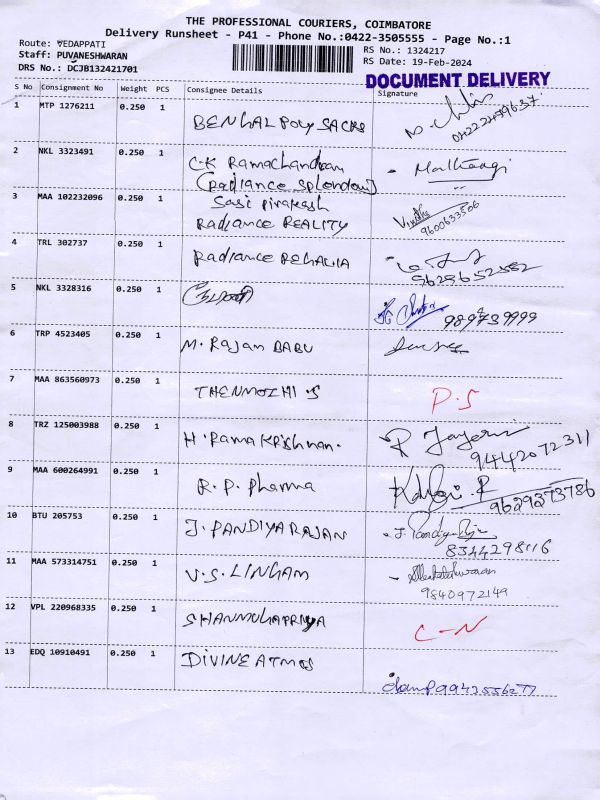 THE PROFESSIONAL COURIERS, COIMBATORE
Delivery Runsheet - P41 - Phone No.:0422-3505555 - Page No.:1
Route: VEDAPPATI
Staff: PUVANESHWARAN
DRS No.: DCJB132421701
RS No.: 1324217
RS Date: 19-Feb-2024
DOCUMENT DELIVERY
S No Consignment No Weight PCS Consignee Details Signature
1 MTP 1276211 0.250 1 BENGAL POLY SACKS
2 NKL 3323491 0.250 1 C.K Ramachandran
(Radiance Splendour)
3 MAA 102232096 0.250 1 Sasi Pirakash
Radiance REALITY
9600633506
4 TRL 302737 0.250 1 Radiance REGALIA
9629652552
5 NKL 3328316 0.250 1
6 TRP 4523405 0.250 1 M. Rajam BABU
7 MAA 863560973 0.250 1 THENMOZHI .S P.S
8 TRZ 125003988 0.250 1 H. Rama Krishnan. R Jayeri
9442072311
9 MAA 600264991 0.250 1 R. P. Pharma
9629273786
10 BTU 205753 0.250 1 J. PANDIYARAJAN J. Pandiya Raja
8344298116
11 MAA 573314751 0.250 1 V.S. LINGAM
9840972149
12 VPL 220968335 0.250 1 SHANMUGAPRIYA C-N
13 EDQ 10910491 0.250 1 DIVINE ATMOS
9942556277